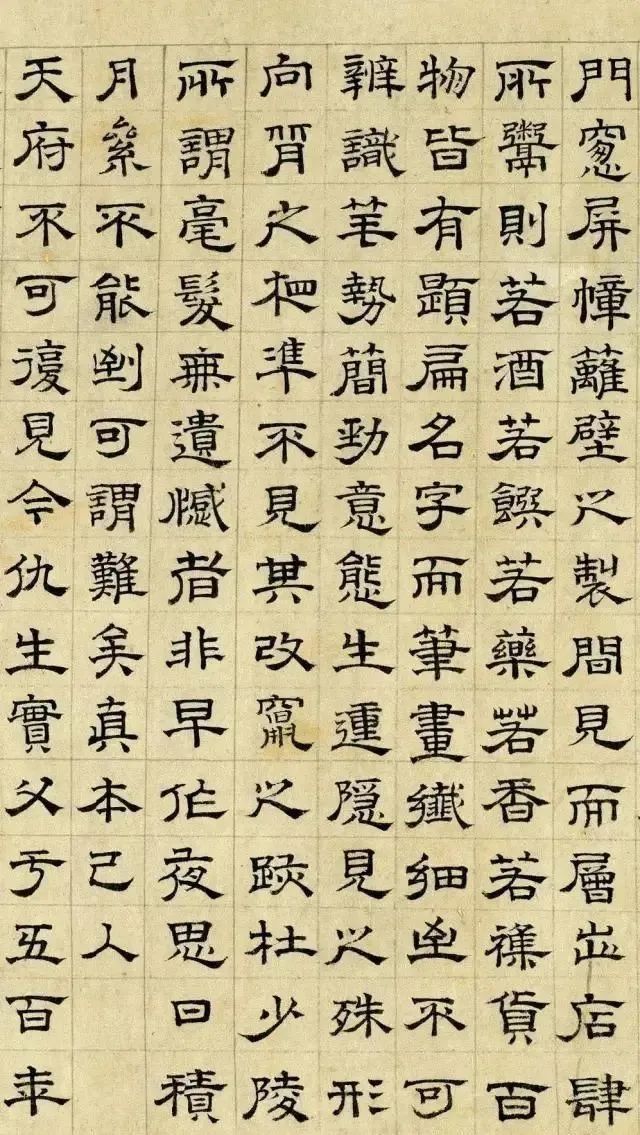 門窻屏幛籬壁之製間見而層出店肆
所鬻則若酒若饌若藥若香若襍貨百
物皆有題扁名字而筆畫纖細至不可
辨識筆勢簡勁意態生運隱見之殊形
向背之相準不見其改竄之跡杜少陵
所謂毫髮無遺憾者非早作夜思日積
月絫不能到可謂難矣真本已入
天府不可復見今仇生實父於五百年